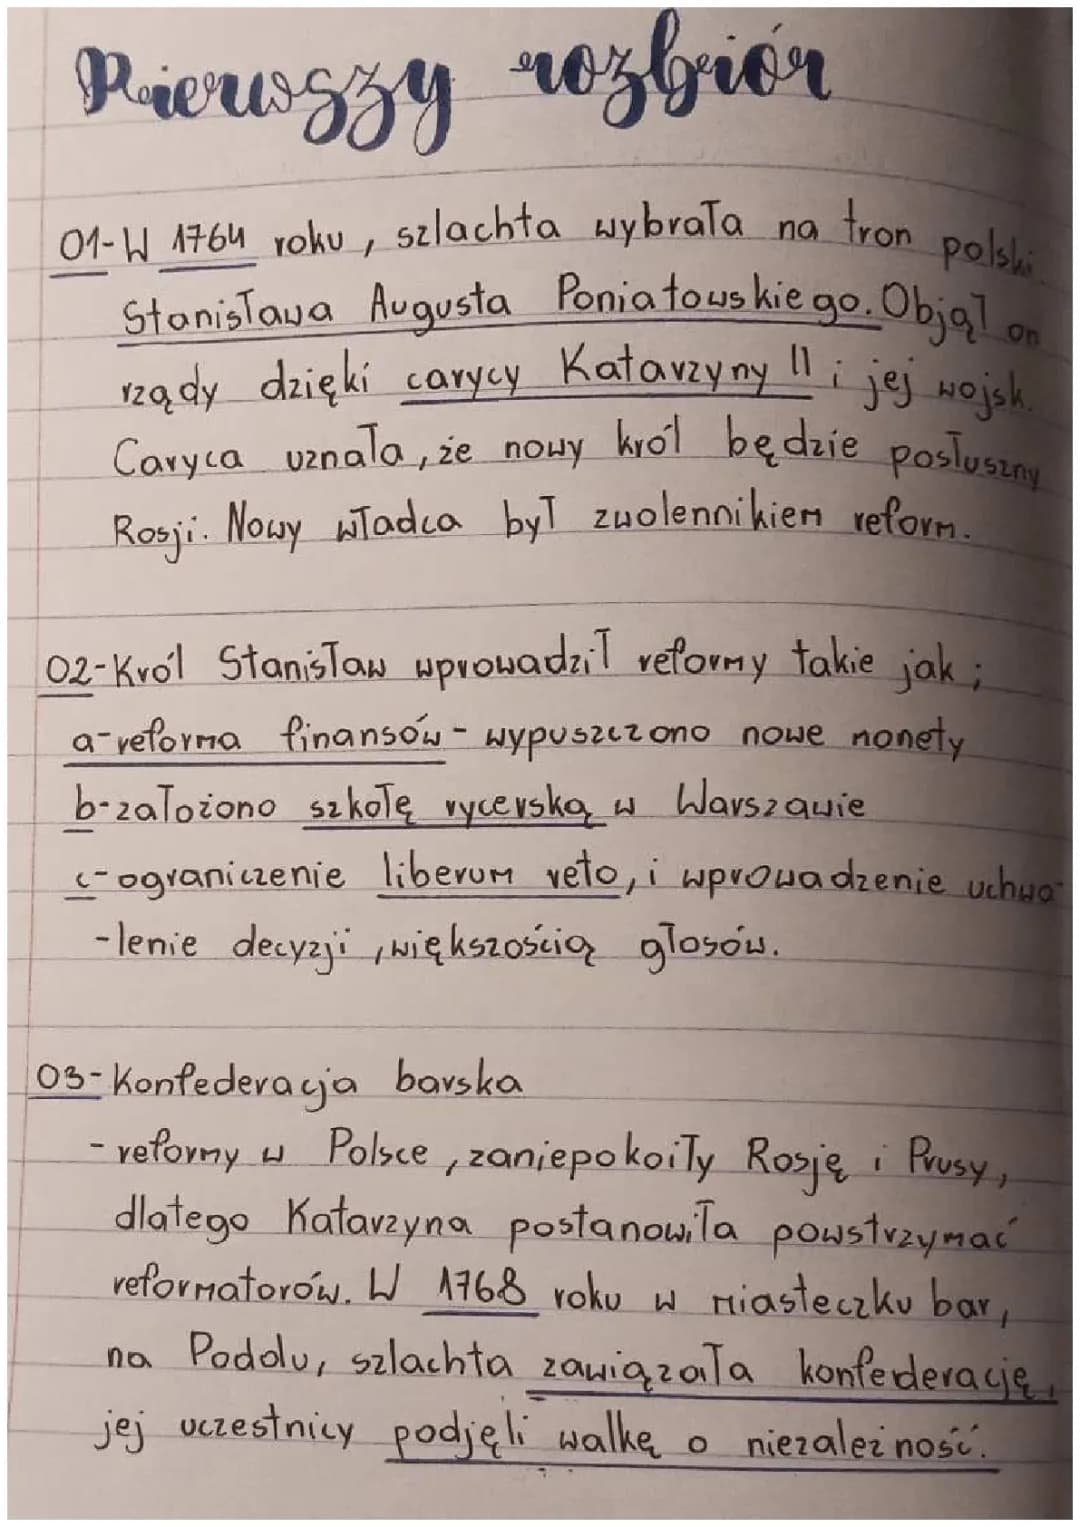 Pierwszy rozbiór
01-W 1764 roku, szlachta wybrała na tron polski
Stanisława Augusta Poniatowskiego. Objął on
rządy dzięki carycy Katarzyny II i jej wojsk.
Caryca uznała, że nowy król będzie posłuszny
Rosji. Nowy władca był zwolennikiem reform.
02-Król Stanisław wprowadził reformy takie jak;
a-reforma finansów - wypuszczono nowe monety
b-założono szkołę rycerską w Warszawie
c-ograniczenie liberum veto, i wprowadzenie uchwa-
-lenie decyzji, większością głosów.
03-Konfederacja barska
-reformy w Polsce, zaniepokoiły Rosję i Prusy,
dlatego Katarzyna postanowiła powstrzymać
reformatorów. W 1768 roku w miasteczku bar,
na Podolu, szlachta zawiązała konfederację,
jej uczestnicy podjęli walkę o niezależność.